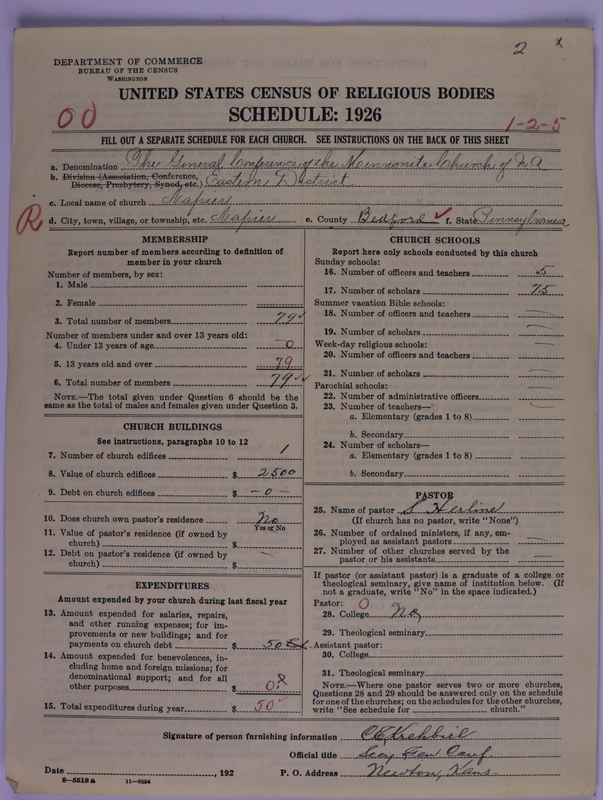 2 x
DEPARTMENT OF COMMERCE
BUREAU OF THE CENSUS
WASHINGTON
UNITED STATES CENSUS OF RELIGIOUS BODIES
SCHEDULE: 1926
00
1-2-5
FILL OUT A SEPARATE SCHEDULE FOR EACH CHURCH. SEE INSTRUCTIONS ON THE BACK OF THIS SHEET
a. Denomination The General Conference of the Mennonite Church of N A
b. Division (Association, Conference,
Diocese, Presbytery, Synod, etc.) Eastern District
c. Local name of church Napier
R
d. City, town, village, or township, etc. Napier e. County Bedford ✓ f. State Pennsylvania
MEMBERSHIP
Report number of members according to definition of
member in your church
Number of members, by sex:
1. Male
2. Female
3. Total number of members 79 ✓
Number of members under and over 13 years old:
4. Under 13 years of age 0
5. 13 years old and over 79
6. Total number of members 79 ✓
NOTE.—The total given under Question 6 should be
same as the total of males and females given under Question 3.
CHURCH BUILDINGS
See instructions, paragraphs 10 to 12
7. Number of church edifices 1
8. Value of church edifices $ 2500
9. Debt on church edifices $ - 0 -
10. Does church own pastor's residence No
Yes or No
11. Value of pastor's residence (if owned by
church) $
12. Debt on pastor's residence (if owned by
church) $
EXPENDITURES
Amount expended by your church during last fiscal year
13. Amount expended for salaries, repairs,
and other running expenses; for im-
provements or new buildings; and for
payments on church debt $ 50
14. Amount expended for benevolences, in-
cluding home and foreign missions; for
denominational support; and for all
other purposes $ 0
15. Total expenditures during year $ 50
CHURCH SCHOOLS
Report here only schools conducted by this church
Sunday schools:
16. Number of officers and teachers 5
17. Number of scholars 75
Summer vacation Bible schools:
18. Number of officers and teachers —
19. Number of scholars —
Week-day religious schools:
20. Number of officers and teachers —
21. Number of scholars —
Parochial schools:
22. Number of administrative officers —
23. Number of teachers—
a. Elementary (grades 1 to 8)
b. Secondary
24. Number of scholars—
a. Elementary (grades 1 to 8)
b. Secondary
PASTOR
25. Name of pastor S Herline
(If church has no pastor, write "None")
26. Number of ordained ministers, if any, em-
ployed as assistant pastors —
27. Number of other churches served by the
pastor or his assistants
If pastor (or assistant pastor) is a graduate of a college or
theological seminary, give name of institution below. (If
not a graduate, write "No" in the space indicated.)
Pastor: 0
28. College No
29. Theological seminary
Assistant pastor:
30. College
31. Theological seminary
NOTE.—Where one pastor serves two or more churches,
Questions 28 and 29 should be answered only on the schedule
for one of the churches; on the schedules for the other churches,
write "See schedule for church."
Signature of person furnishing information C E Krehbiel
Official title Secy Gen Conf
Date , 192 P. O. Address Newton, Kans.
8-5518a 11-9054